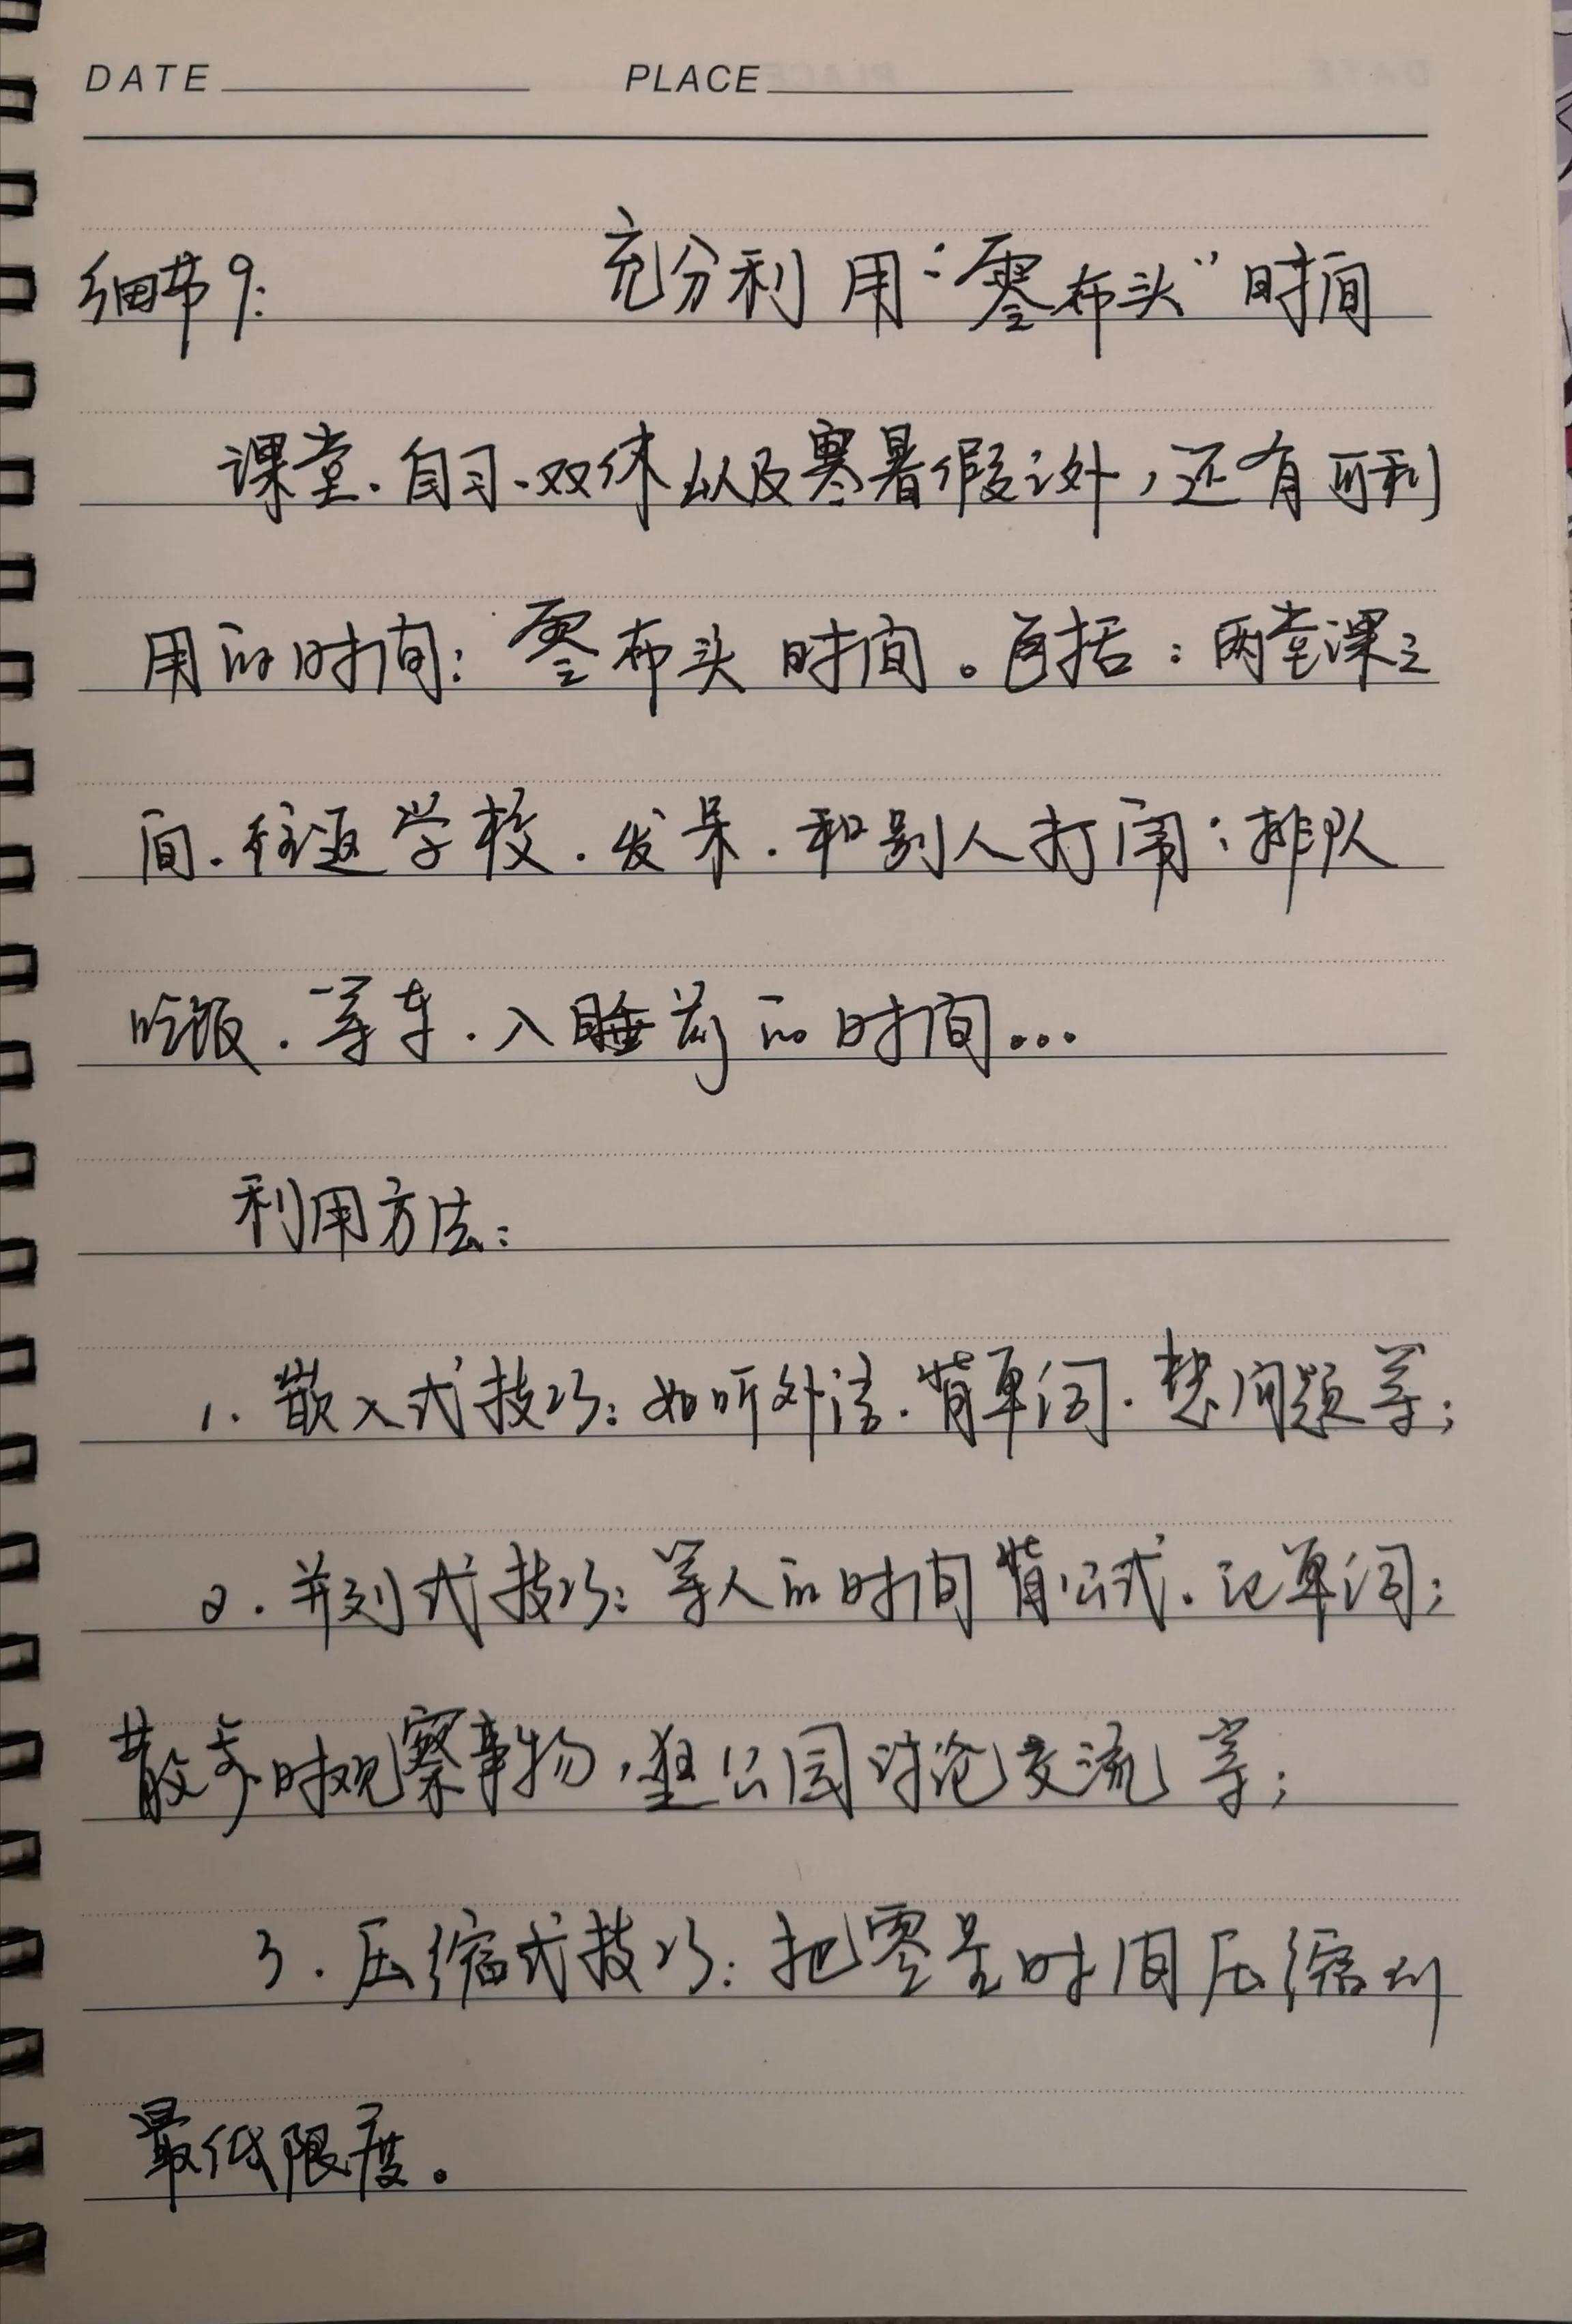 DATE PLACE
细节9: 充分利用“零布头”时间
课堂、自习、双休以及寒暑假之外，还有可利
用的时间：零布头时间。包括：两堂课之
间、往返学校、发呆、和别人打闹；排队
吃饭、等车、入睡前的时间...
利用方法：
1. 嵌入式技巧：如听外语、背单词、想问题等；
2. 并列式技巧：等人的时间背公式、记单词；
散步时观察事物，逛公园讨论交流等；
3. 压缩式技巧：把零星时间压缩到
最低限度。